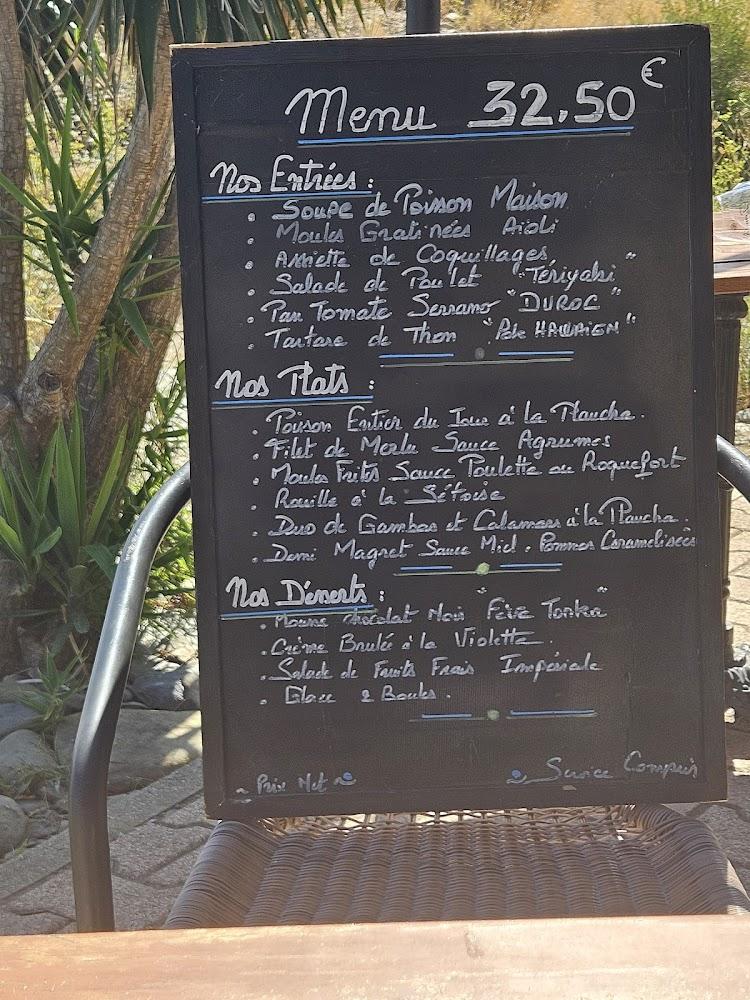 Menu 32,50€
Nos Entrées :
• Soupe de Poisson Maison
• Moules Gratinées Aïoli
• Assiette de Coquillages
• Salade de Poulet "Tériyaki"
• Pan Tomate Serrano "DUROC"
• Tartare de Thon "Poke HAWAIEN"
Nos Plats :
• Poisson Entier du Jour à la Plancha.
• Filet de Merlu Sauce Agrumes
• Moules Frites Sauce Poulette ou Roquefort
• Rouille à la Sétoise
• Duo de Gambas et Calamars à la Plancha.
• Demi Magret Sauce Miel. Pommes Caramelisées
Nos Desserts :
• Mousse chocolat Noir "Fève Tonka"
• Crème Brulée à la Violette.
• Salade de Fruits Frais Impériale
• Glace 2 Boules.
~ Prix Net ~
Service Compris